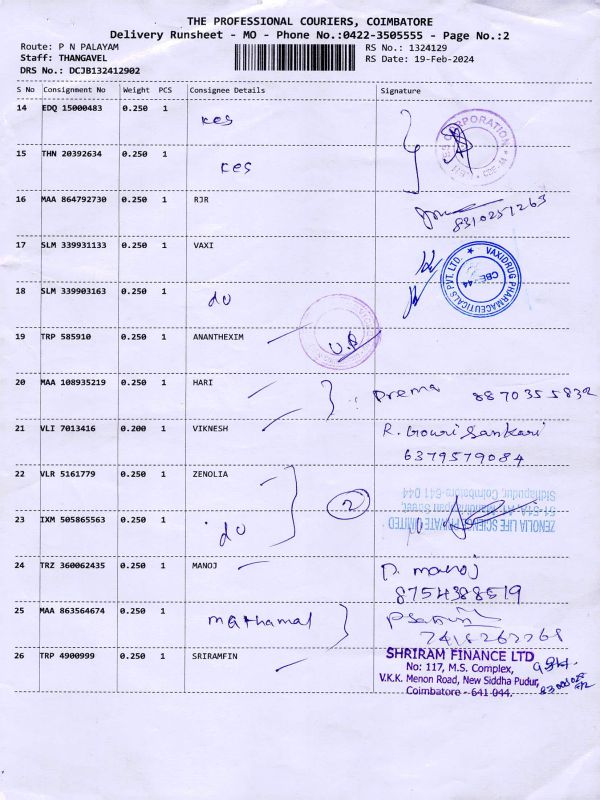 THE PROFESSIONAL COURIERS, COIMBATORE
Delivery Runsheet - MO - Phone No.:0422-3505555 - Page No.:2
Route: P N PALAYAM RS No.: 1324129
Staff: THANGAVEL RS Date: 19-Feb-2024
DRS No.: DCJB132412902
S No Consignment No Weight PCS Consignee Details Signature
14 EDQ 15000483 0.250 1 KES
CORPORATION
15 THN 20392634 0.250 1 KES
16 MAA 864792730 0.250 1 RJR
8310251263
17 SLM 339931133 0.250 1 VAXI
VAXIDRUG PHARMACEUTICALS PVT. LTD. ★
CBE-44
18 SLM 339903163 0.250 1 do
19 TRP 585910 0.250 1 ANANTHEXIM
20 MAA 108935219 0.250 1 HARI Prema 8870355832
21 VLI 7013416 0.200 1 VIKNESH R. Gowri Sankari
6379579084
22 VLR 5161779 0.250 1 ZENOLIA
2
ZENOLIA LIFE SCIENCE PRIVATE LIMITED
Sidhapudur, Coimbatore-641 044
23 IXM 505865563 0.250 1 do
24 TRZ 360062435 0.250 1 MANOJ P. manoj
8754388519
25 MAA 863564674 0.250 1 mathamal
26 TRP 4900999 0.250 1 SRIRAMFIN
SHRIRAM FINANCE LTD
No: 117, M.S. Complex,
V.K.K. Menon Road, New Siddha Pudur,
Coimbatore - 641 044.